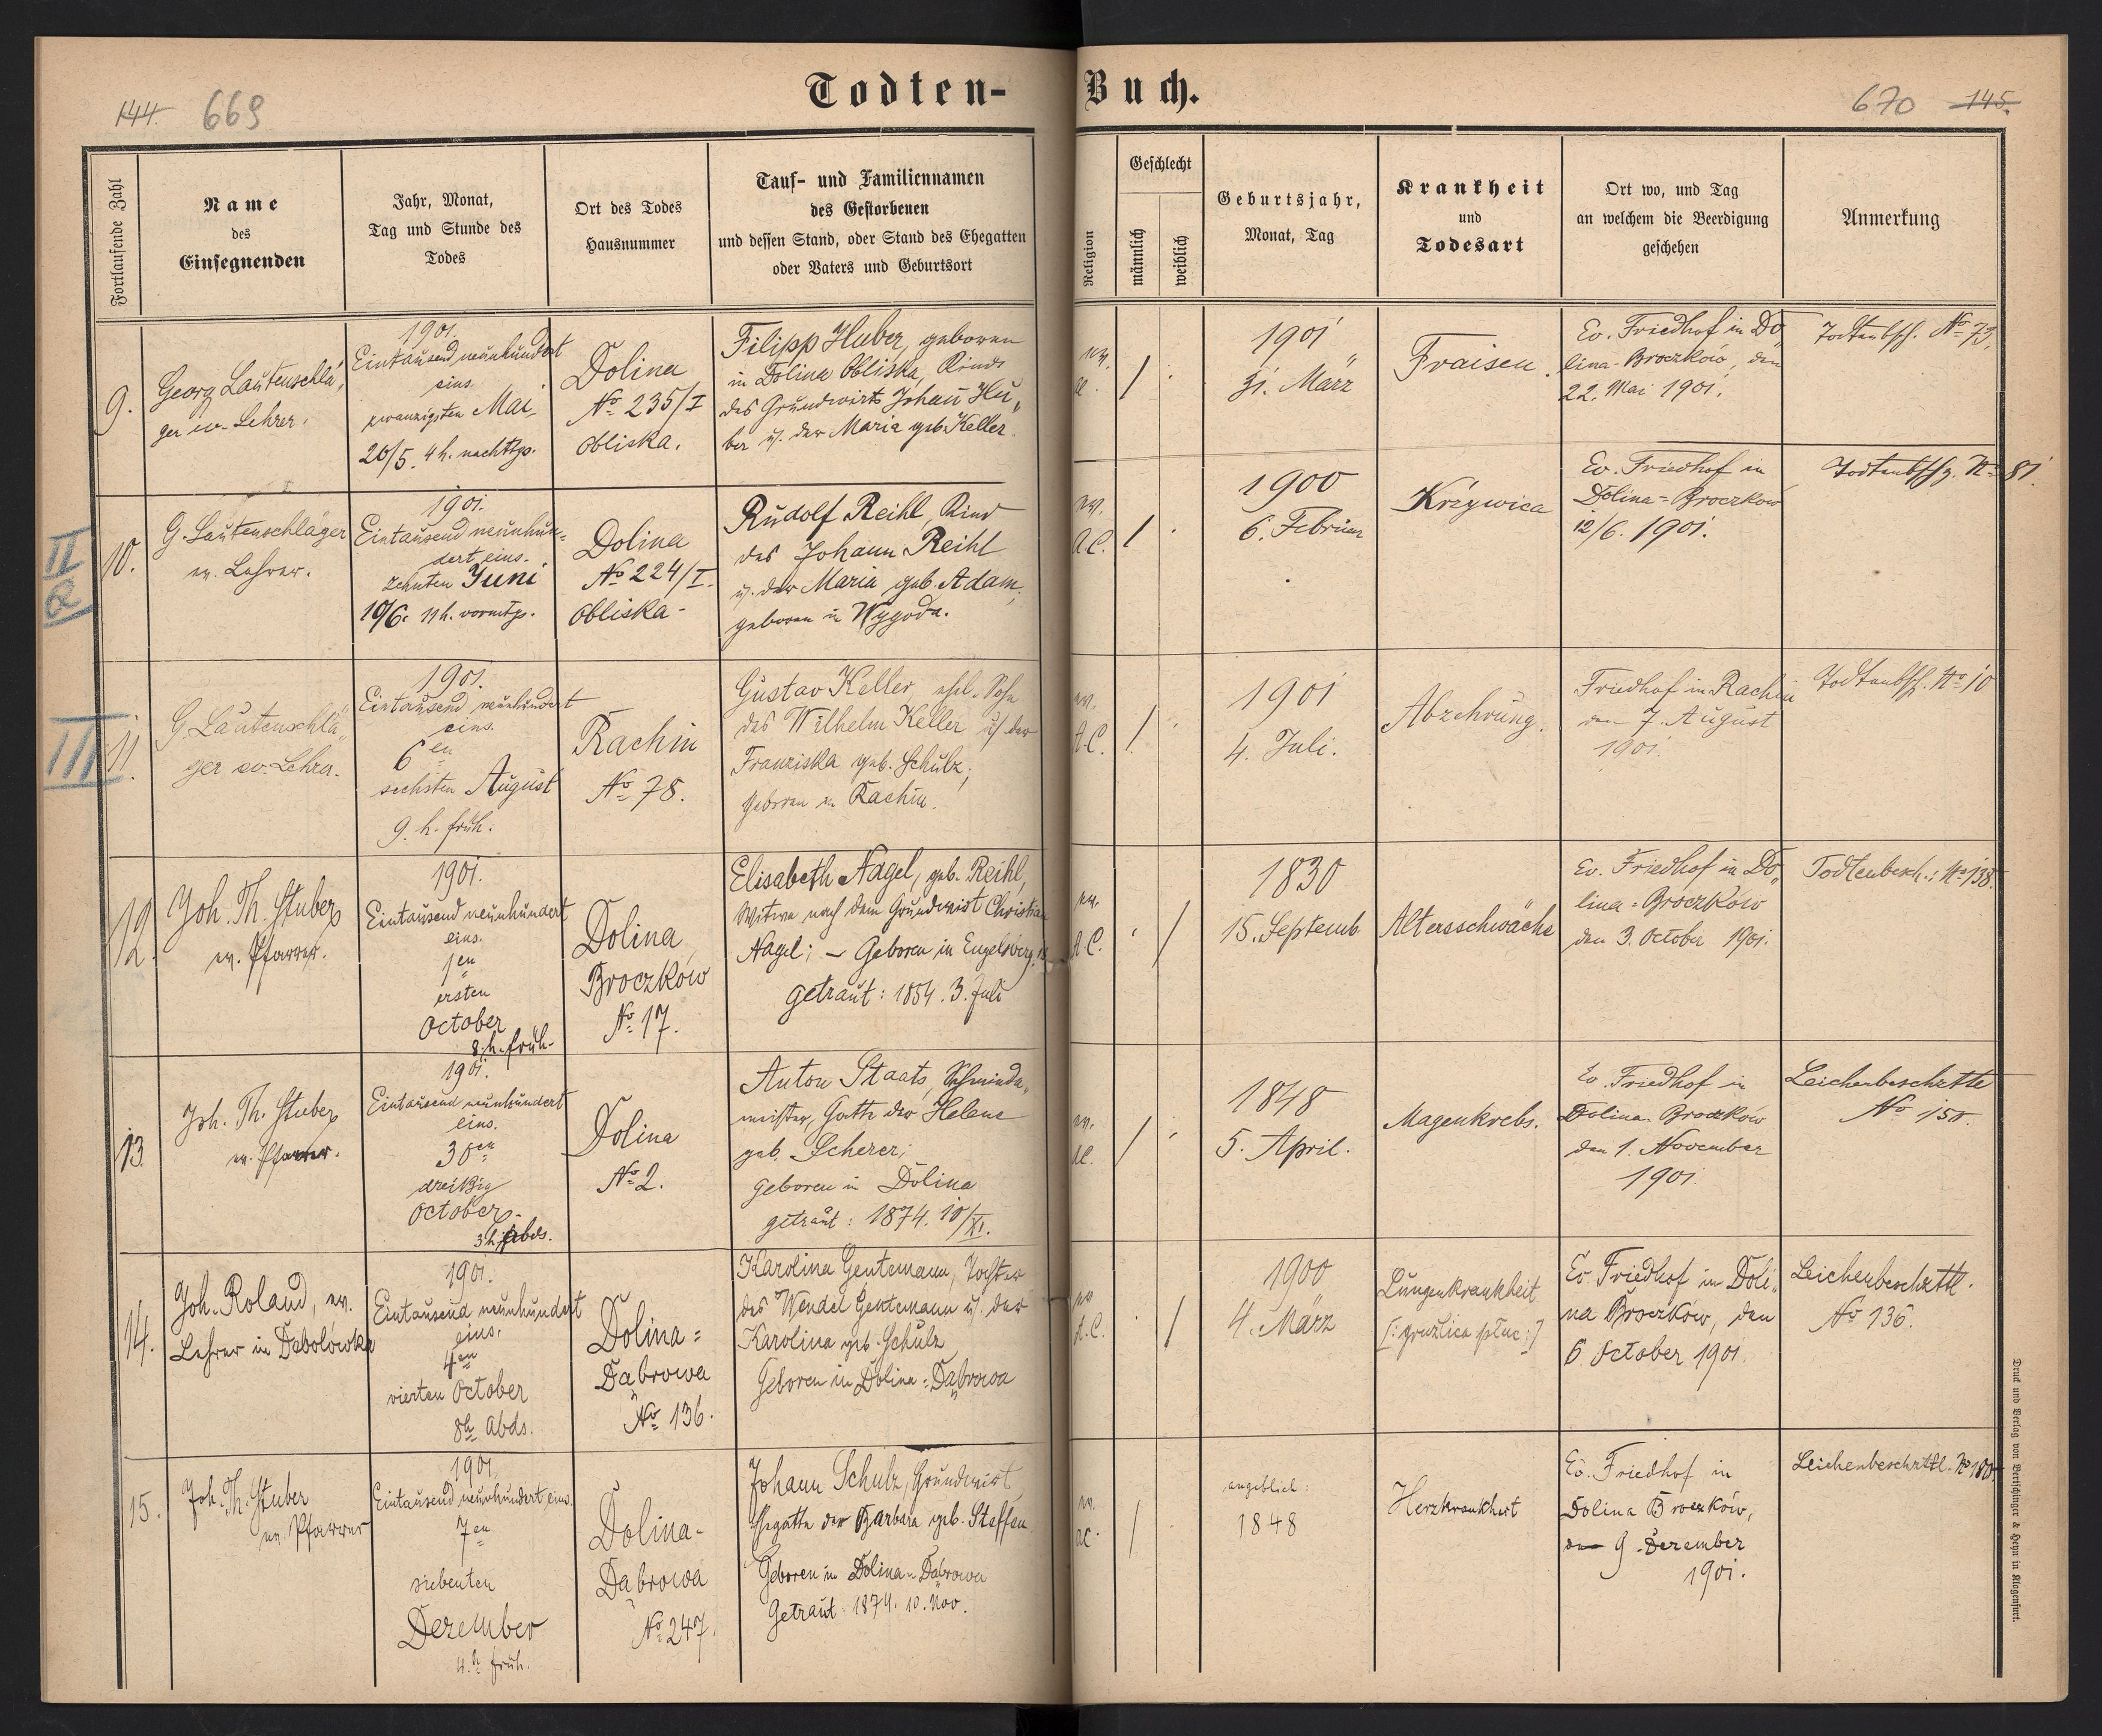 Todten-Buch.
144. 669
670 145.
Fortlaufende Zahl
Name
des
Einsegnenden
Jahr, Monat,
Tag und Stunde des
Todes
Ort des Todes
Hausnummer
Tauf- und Familiennamen
des Gestorbenen
und dessen Stand, oder Stand des Ehegatten
oder Vaters und Geburtsort
Religion
Geschlecht
männlich
weiblich
Geburtsjahr,
Monat, Tag
Krankheit
und
Todesart
Ort wo, und Tag
an welchem die Beerdigung
geschehen
Anmerkung
9.
Georg Lautenschlä„
ger ev. Lehrer.
1901.
Eintausend neunhundert
eins
zwanzigsten Mai,
20/5. 4 h. nachttgs.
Dolina
No 235/I
Obliska.
Filipp Huber, geboren
in Dolina Obliska, Kind
des Grundwirts Johann Hu„
ber u. der Maria geb. Keller.
ev.
/
1901
31. März
Fraisen.
Ev. Friedhof in Do„
lina-Broczków, den
22. Mai 1901.
Todtenbsch. No 73.
II
10.
G. Lautenschläger
ev. Lehrer.
1901.
Eintausend neunhun=
dert eins.
zehnten Juni
10/6. 11 h. vormtgs.
Dolina
No 224/I.
Obliska-
Rudolf Reihl, Kind
des Johann Reihl
u. der Maria geb. Adam;
geboren in Wygoda.
ev.
A.C.
/
1900
6. Februar
Krzywica
Ev. Friedhof in
Dolina=Broczków
12/6. 1901.
No 81.
III
11.
G. Lautenschlä„
ger ev. Lehrer.
1901.
Eintausend neunhundert
eins.
6en
sechsten August
9. h. früh.
Rachin
No 78.
Gustav Keller, ehel. Sohn
des Wilhelm Keller u. der
Franziska geb. Schulz;
geboren in Rachin.
ev.
A.C.
/
1901
4. Juli.
Abzehrung.
Friedhof in Rachin
den 7. August
1901.
Todtenbsch. No 10
12.
Joh. Th. Stuber
ev. Pfarrer.
1901.
Eintausend neunhundert
eins.
1en
ersten
October
8 h. früh-
Dolina
Broczków
No 17.
Elisabeth Nagel, geb. Reihl,
Witwe nach dem Grundwirt Christian
Nagel; – Geboren in Engelsberg
getraut: 1854. 3. Juli
ev.
A.C.
/
1830
15. Septemb.
Altersschwäche
Ev. Friedhof in Do„
lina=Broczków
den 3. October 1901.
Todtenbesch.: No 138.
13
Joh. Th. Stuber
ev. Pfarrer.
1901.
Eintausend neunhundert
eins.
30en
dreißig
October
3 h Abds.
Dolina
No 2.
Anton Staats, Schmiede„
meister, Gatte der Helene
geb. Scherer;
geboren in Dolina
getraut: 1874. 10/XI.
ev.
/
1848
5. April.
Magenkrebs.
Ev. Friedhof in
Dolina-Broczków
den 1. November
1901.
Leichenbeschzttl
No 150.
14.
Joh. Roland, ev.
Lehrer in Debolówka
1901.
Eintausend neunhundert
eins.
4en
vierten October
8h Abds.
Dolina=
Dąbrowa
No 136.
Karolina Gentemann, Tochter
des Wendel Gentemann u. der
Karolina geb. Schulz
Geboren in Dolina=Dąbrowa
ev
A.C.
/
1900
4. März
Lungenkrankheit
[:gruźlica płuc:]
Ev. Friedhof in Doli„
na Broczków, den
6. October 1901.
Leichenbeschzttl.
No 136.
15.
Joh. Th. Stuber
ev. Pfarrer
1901
Eintausend neunhundert eins.
7en
siebenten
Dezember
4. h früh.
Dolina-
Dąbrowa
No 247.
Johann Schulz, Grundwirt
Ehegatte der Barbara geb. Steffen
Geboren in Dolina=Dąbrowa
Getraut: 1874. 10. Nov.
ev.
AC.
/
angeblich:
1848
Herzkrankheit
Ev. Friedhof in
Dolina Broczków,
den 9. Dezember
1901.
Leichenbeschzttl. No 180
Druck und Verlag von Bertschinger & Heyn in Klagenfurt.